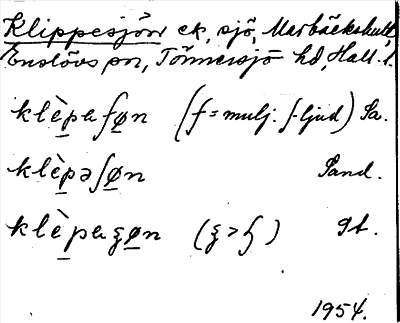 Klippesjön ek, sjö, Marbäckshult,
Enslövs sn, Tönnersjö hd, Hall. l.
klè̱paʃø̱n (ʃ = mulj. ʃ-ljud) Sa.
klè̱pəʃø̱n Sand.
klè̱paʓø̱n gt.
1954.